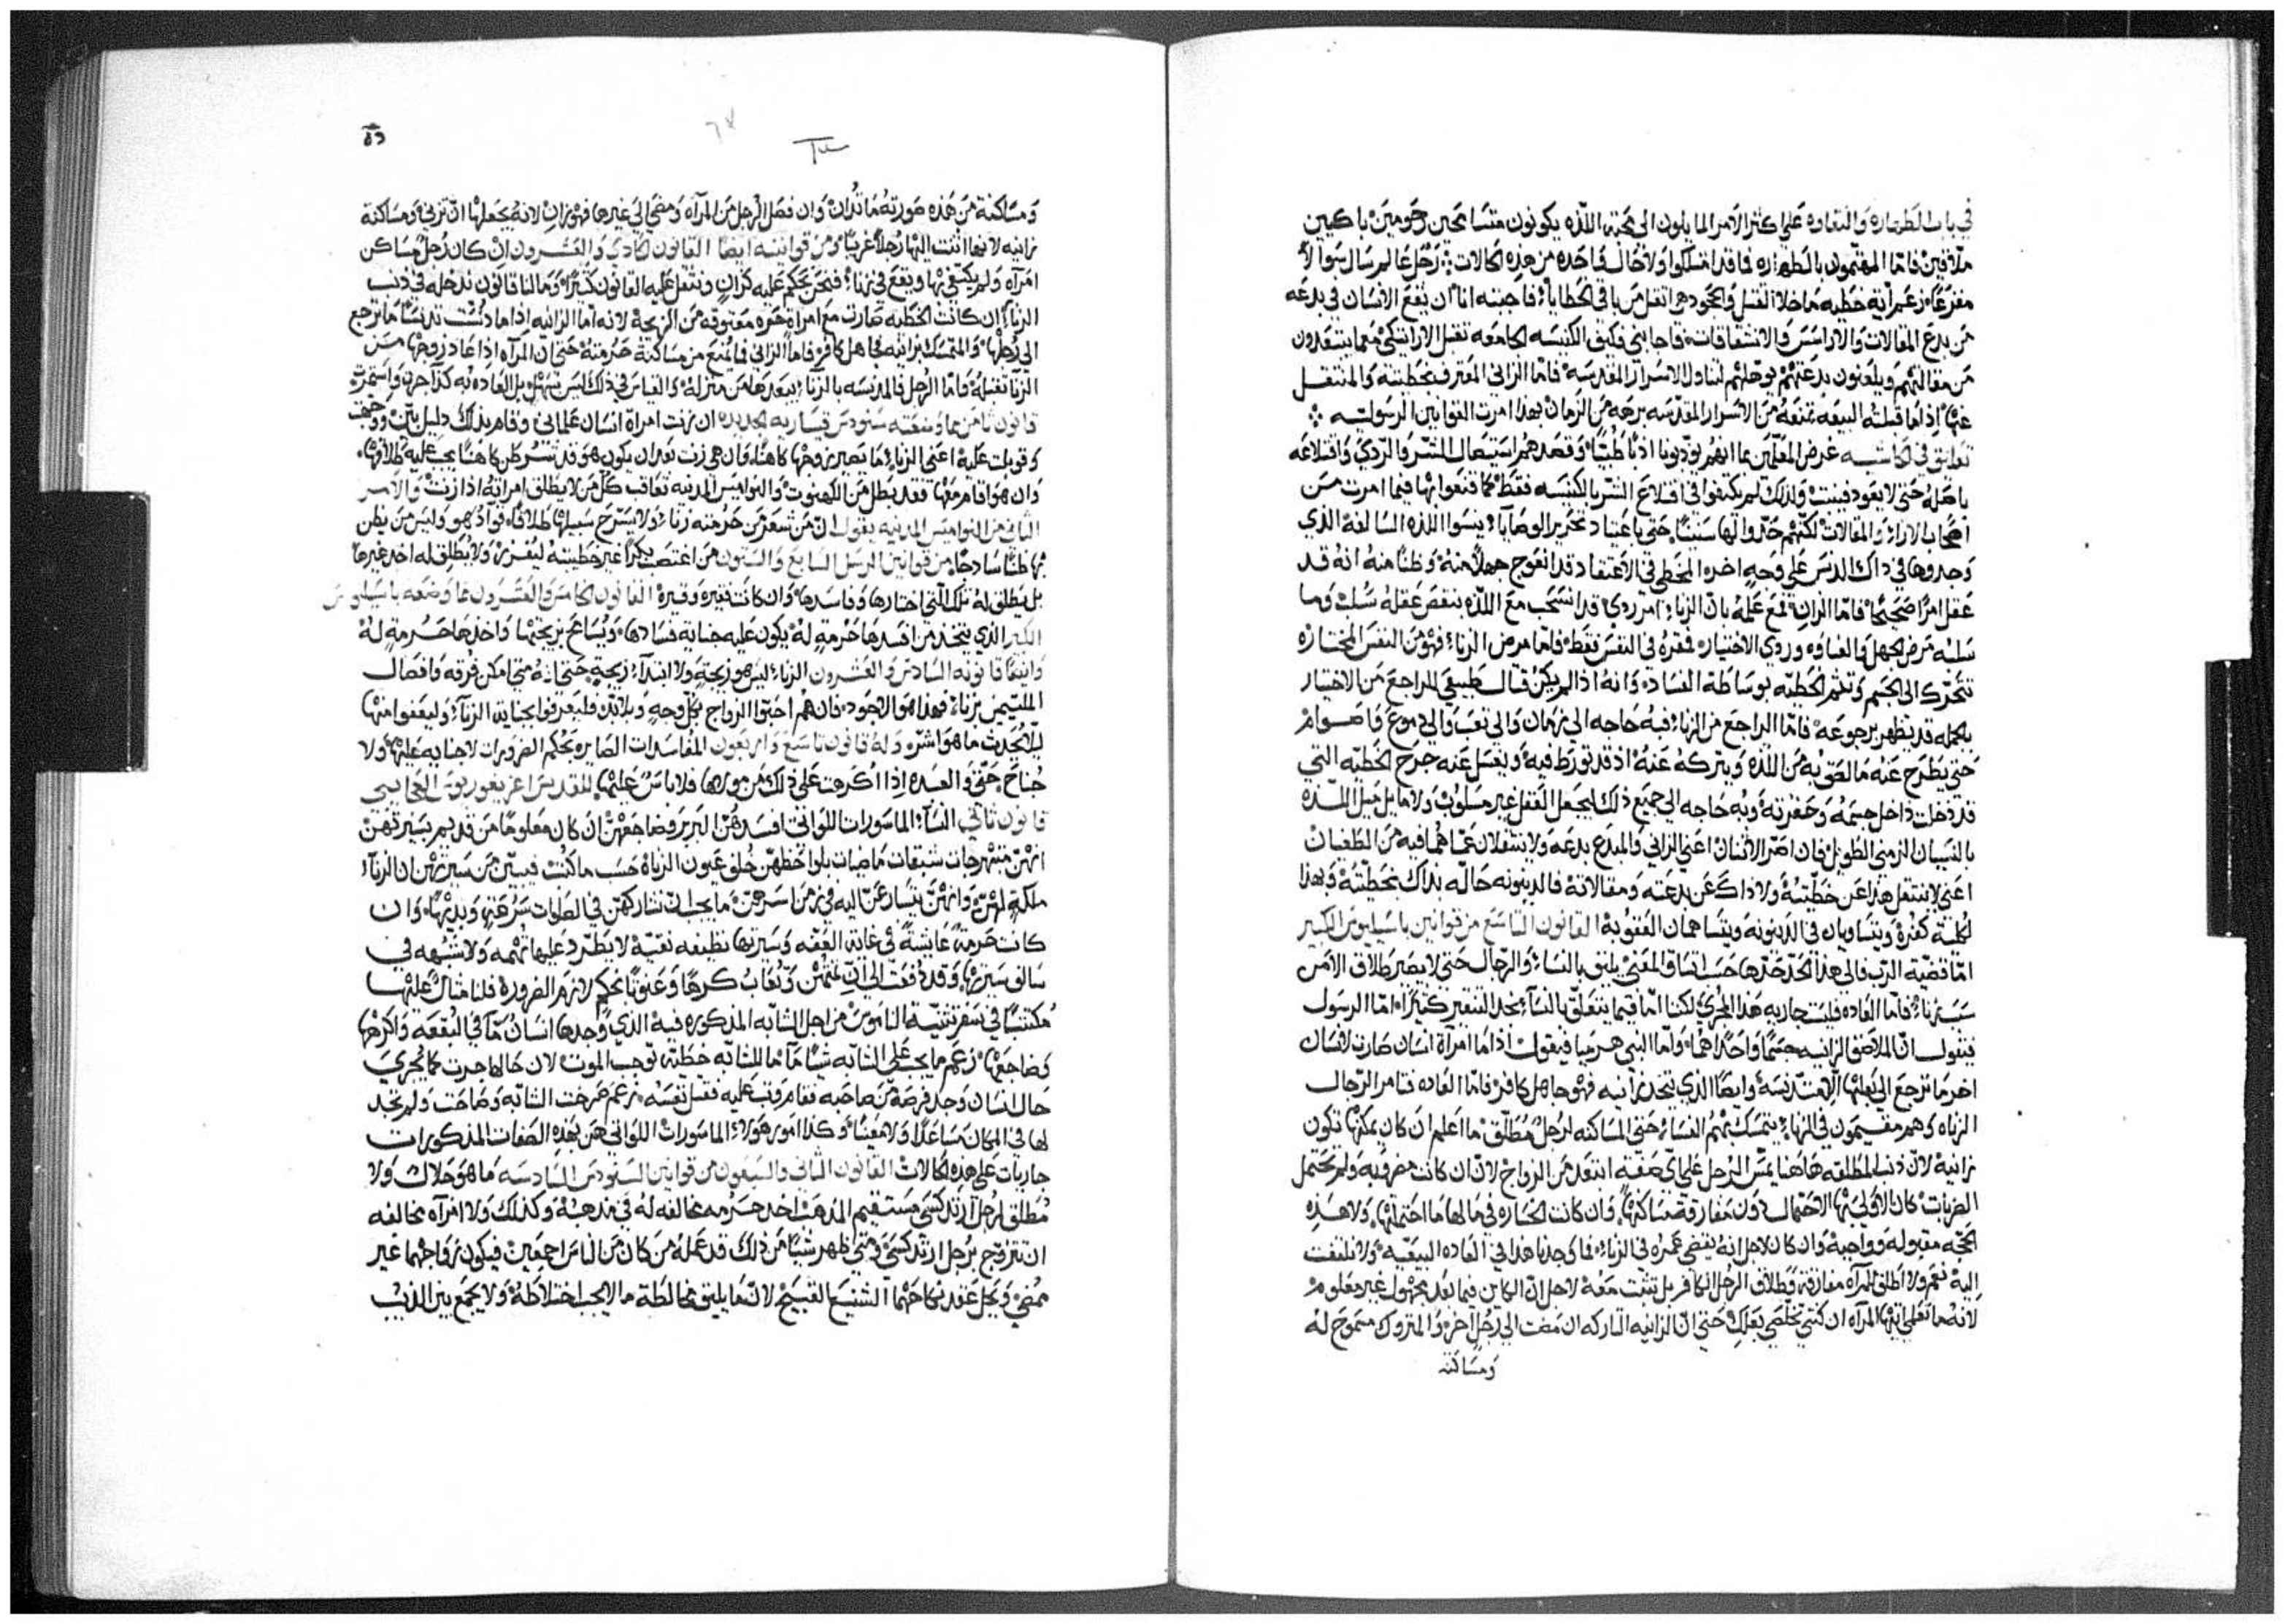 في باب الطهاره والنقاوه على اكثر الامر المايلون الى محبة اللذه يكونون متسامحين رحومين باكيين
متلافين فاما المهتمون بالطهاره فما قد امتلكوا ولا حال واحده من هذه الحالات رجل عالم سال سوالا
مفزعا زعم اية خطيه ماخلا القتل والجحود هي اثقل من باقي الخطايا فاجبته انا ان يقع الانسان في بدعه
من بدع المقالات والاراسس والانشقاقات فاجابني فكيف الكنيسه الجامعه تقبل الاراتكي معما يبتعدون
من مقالتهم ويلعنون بدعتهم توهلهم لتناول الاسرار المقدسه فاما الزاني المعترف بخطيته والمنتقل
عنها اذا ما قبلته البيعه تمنعه من الاسرار المقدسه برهة من الزمان بهذا امرت القوانين الرسوليه
تعليق في الحاشيه غرض المعلمين بما انهم يودبونا ادبا طبيا وقصدهم استيصال الشر والردي واقتلاعه
باصله حتى لا يعود فينبت ولذلك لم يكتفوا في اقتلاع الشر بالكنيسه فقط
اصحاب الاراء والمقالات لكنهم حددوا لها سنينا حتى باعتياد تحرير الوصايا ينسوا اللذه السالفه الذي
وجدوها في ذاك الدنس على وجه اخر المخطي في الاعتقاد قد انعوج جهلا منه وظنا منه انه قد
عقل امرا صحيحا فاما الزاني فمع علمه بان الزناء امر ردي قد انسحب مع اللذه بنقص عقله
مرض الجهل والغباوه وردي الاختيار فمقره في النفس فقط فاما مرض الزناء فهو من النفس المختاره
تتحرك الى الجسم وتتم الخطيه بوساطة الفساد وانه اذا لم يكن قتال طبيعي المراجع من الاختيار
بكمله قد يطهر برجوعه فاما الراجع من الزناء فبه حاجه الى زمان والى تعب والى دموع واصوام
حتى يطرح عنه ما لصق به من اللذه ويتركه عنه اذ قد تورط فيه ويغسل عنه جرح الخطيه التي
قد دخلت داخل جسمه وحفرته وبه حاجه الى جميع ذلك ليجعل العقل غير مسلوب ولا مايل ميل اللذه
بالنسيان الزمني الطويل فان اصر الاثنان اعني الزاني والمبدع بدعه ولا ينتقلان عما هما فيه من الطغيان
اعني لا ينتقل هذا عن خطيته ولا ذاك عن بدعته ومقالاته فالدينونه حاله بذاك بخطيته وبهذا
لكلمة كفره ويتساويان في الدينونه ويتساهمان العقوبه القانون التاسع من قوانين باسيليوس الكبير
اما قضية الرب فالى هذا الحد حدها حسب اتساق المعنى يليق بالنساء والرجال حتى لا يصير طلاق الا من
سبب زناء فاما العاده فليست جاريه هذا المجرى لكننا اما فيما يتعلق بالنساء نجد التنقير كثيرا اما الرسول
فيقول ان الملاصق الزانيه جسما واحدا هما واما النبي هرميا فيقول اذا ما امراة انسان صارت لانسان
اخر ما ترجع الى بعلها الا تدنسه وايضا الذي يتخذ زانيه فهو جاهل كافر فاما العاده فتامر الرجال
الزناه وهم مقيمون في الزناء يتمسك بهم النساء حتى المساكنه لرجل مطلق ما اعلم ان كان يمكنها تكون
زانيه لان ذنب المطلقه هاهنا يمس الرجل على اي صفة ابتعد من الزواج لان ان كانت مضروبه ولم تحتمل
الضربات كان الاولى بها الاحتمال دون مفارقة مساكنها وان كانت الخساره في مالها ما احتملتها ولا هذه
الحجه مقبوله وواجبه وان كان لاجل انه يقضي عمره في الزناء فما وجدنا هذا في العاده البيعيه ولا نلتفت
اليه نعم ولا اطلق للمراه مفارقة وطلاق الرجل الكافر بل تثبت معه لاجل ان الكاين فيما بعد مجهول غير معلوم
لانه ما تعلمي ايتها المراه ان كنتي تخلصي بعلك حتى ان الزانيه التاركه ان مضت الى رجل اخر والمتروك مسموح له
ومساكنة
٥٦
ومساكنة من هذه صورته ما تدان وان فصل الرجل من المراه ومضى الى غيرها فهو زان لانه يجعلها ان تزني ومساكنة
زانيه لانها اثنت اليها رجلا غريبا ومن قوانينه ايضا القانون الحادي والعشرون ان كان رجل مساكن
امراه ولم يكتفي بها ويقع في زناء فنحن نحكم عليه كزان ونثقل عليه القانون كثيرا وما لنا قانون ندخله في ذنب
الزناء ان كانت الخطيه صارت مع امراة حره معتوقه من الزيجه لانه اما الزانيه اذا ما دنست تدنسا ما ترجع
الى رجلها والمتمسك بزانيه جاهل كافر فاما الزاني فما يمنع من مساكنة حرمته حتى ان المراه اذا عاد زوجها من
الزنا تقبله واما الرجل فالمدنسه بالزناء يبعدها من منزله والقياس في ذلك ليس يسهل بل العاده به كذا جرت واستمرت
قانون ثامن مما وضعته سنودس قيساريه الجديده ان زنت امراة انسان علماني وقام بذلك دليل بين ووجهت
وقوبلت عليه اعني الزناء ما يصير زوجها كاهنا وان هي زنت بعد ان يكون هو قد تشرطن كاهنا يجب عليه طلاقها
وان هو اقام معها فقد يطل من الكهنوت والنواميس المدنيه تعاقب كل من لا يطلق امراته اذا زنت والامر
الثاني من النواميس المدنيه يقول ان من شعر من حرمته زناء ولا يسرح سبيلها طلاقا فواد هو وليس من يظن
بها ظنا ساذجا من قوانين الرسل السابع والستون من اغتصب بكرا غير خطيبته ليفرز ولا يطلق له اخذ غيرها
بل يطلق له تلك التي اختارها وفاسدها وان كانت فقيره وقيره القانون الخامس والعشرون مما وضعه باسيليوس
الكبير الذي يتخذ من افسدها حرمة له يكون عليه جنابة فسادها ويسامح بزيجتها واخذها حرمة له
وايضا قانونه السادس والعشرون الزناء ليس هو زيجة ولا ابتداء زيجة حتى انه متى امكن فرقه وافصال
الملتيمين بزناء فهذا هو الاجود فان هم احبوا الزواج بكل وجه وبلا بد فليعرفوا بجناية الزناء وليعفوا منها
ليلا يحدث ما هو اشر وله قانون تاسع واربعون المفاسدات الصايره بحكم الضرورات لا جنايه عليها ولا
جناح حتى والعبده اذا اكرهت على ذلك من مولاها فلا باس عليها للمقدس اغريغوريوس العجايبي
قانون ثاني النساء الماسورات اللواتي افسدهن البربر وضاجعهن ان كان معلوما من قديم سيرتهن
انهن متبهرجات شبقات ماضيات بلواحظهن خلف عيون الزناه حسب ما كتب فبين من سيرتهن ان الزناء
ملكة لهن وانهن يتسارعن اليه في زمن اسرهن ما يجب ان نشاركهن في الصلوات سرعة وبديها وان
كانت حرمة عايشة في غاية العفه وسيرتها نظيفه نقيه لا يطرد عليها تهمه ولا شبهه في
سالف سيرتها وقد دفعت الى ان تمتهن وتعاب كرها وعنوة بحكم لازم الضروره فلنا مثال عليها
مكتتبا في سفر تثنية الناموس من اجل الشابه المذكوره فيه الذي وجدها انسان ما في البقعه واكرهها
وضاجعها زعم ما يجب على الشابه شيا ما ما للشابه خطيه توجب الموت لان حالها جرت كما تجري
حال انسان وجد فرصة من صاحبه فقام وثب عليه فقتل نفسه زعم صرخت الشابه وصاحت ولم تجد
لها في المكان مساعدا ولا مغيثا وكذا امور هولاء الماسورات اللواتي هن بهذه الصفات المذكورات
جاريات على هذه الحالات القانون الثاني والسبعون من قوانين السنودس السادسه ما هو حلال ولا
مطلق لرجل ارتدكسي مستقيم المذهب اخذ حرمه مخالفه له في مذهبه وكذلك ولا امراه مخالفه
ان تتزوج برجل ارتدكسي ومتى ظهر شيا من ذلك قد عمله من كان من الناس اجمعين فيكون زواجهما غير
ممضي ويحل عقد نكاحهما الشنيع القبيح لانه ما يليق مخالطة ما لا يجب اختلاطه ولا يجمع بين الذيب